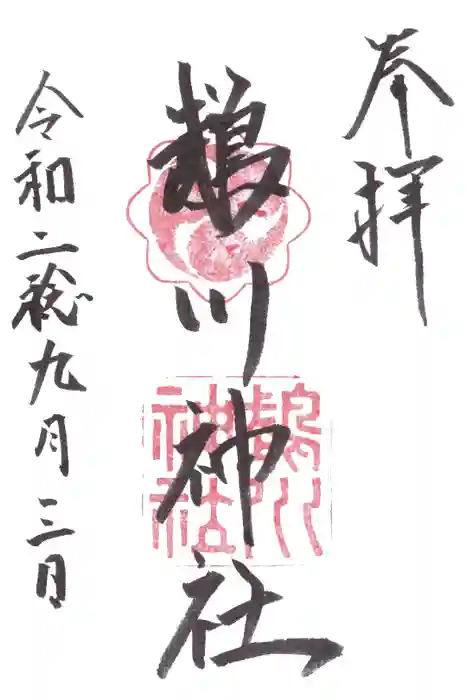 奉拝
鵡川神社
鵡川
神社
令和二稔九月三日